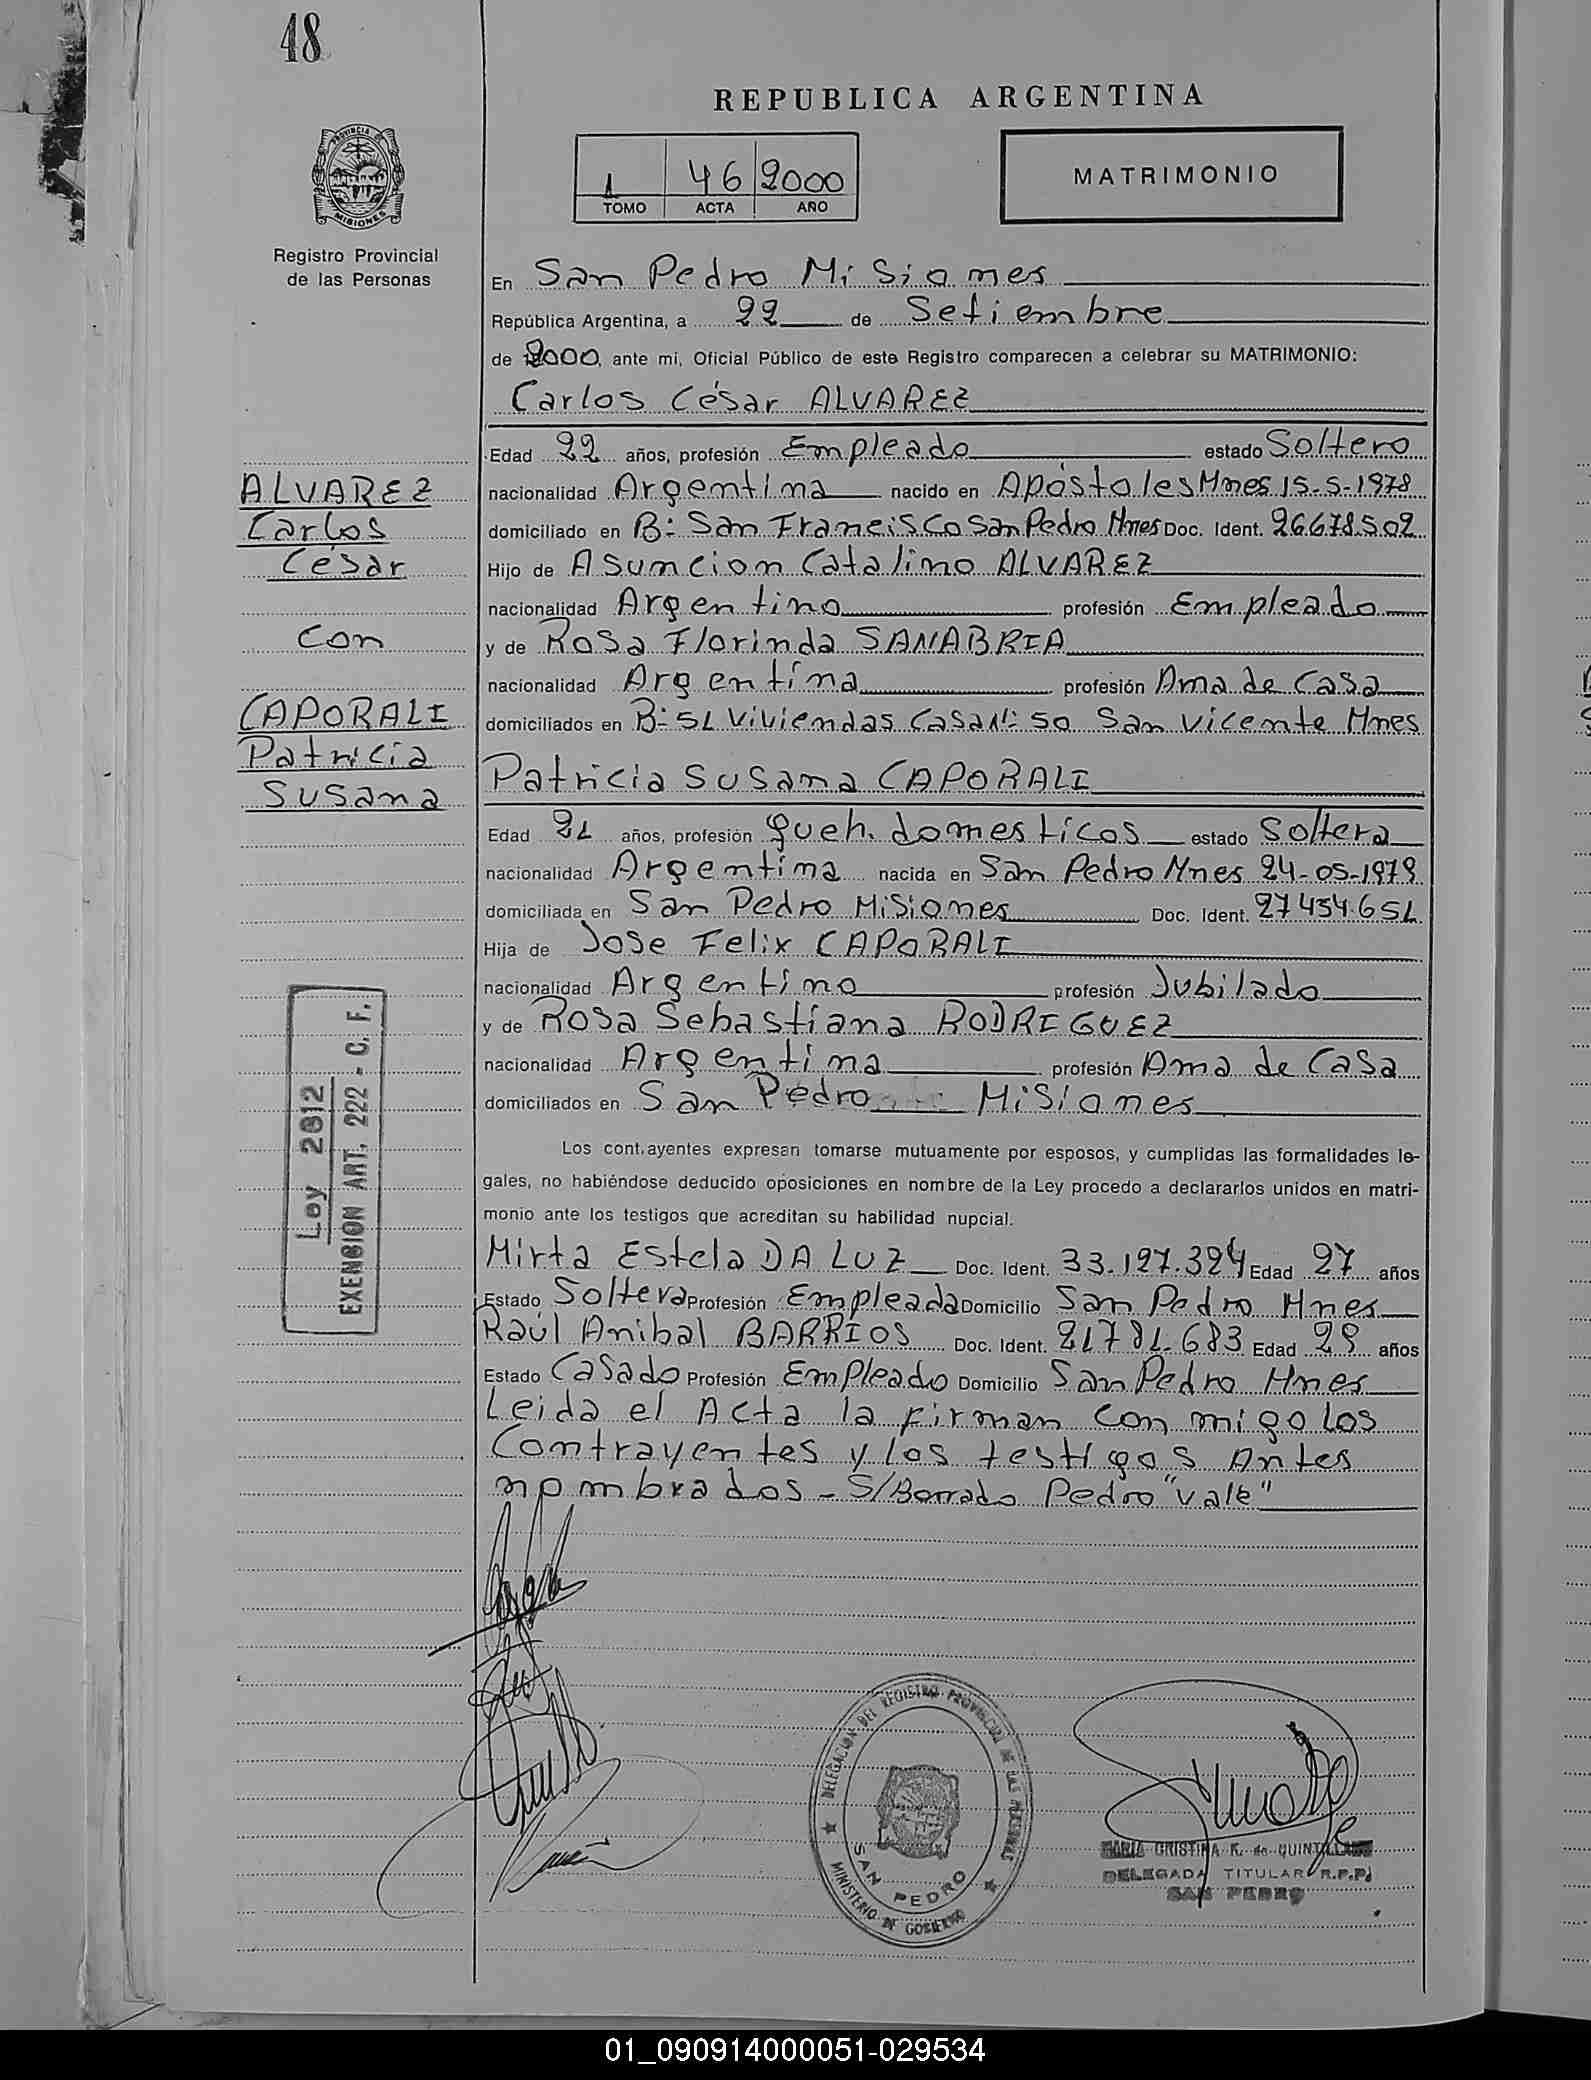 48
REPUBLICA ARGENTINA
PROVINCIA DE
MISIONES
Registro Provincial
de las Personas
1 46 2000
TOMO ACTA AÑO
MATRIMONIO
En San Pedro Misiones
República Argentina, a 22 de Setiembre
de 2000, ante mi, Oficial Público de este Registro comparecen a celebrar su MATRIMONIO:
Carlos César ALVAREZ
Edad 22 años, profesión Empleado estado Soltero
nacionalidad Argentina nacido en Apóstoles Mnes 15-5-1978
domiciliado en B: San Francisco San Pedro Mnes Doc. Ident. 26.678.502
Hijo de Asuncion Catalino ALVAREZ
nacionalidad Argentino profesión Empleado
y de Rosa Florinda SANABRIA
nacionalidad Argentina profesión Ama de Casa
domiciliados en B: 51 Viviendas Casa N: 50 San Vicente Mnes
Patricia Susana CAPORALI
Edad 21 años, profesión Queh. domesticos estado Soltera
nacionalidad Argentina nacida en San Pedro Mnes 24-05-1979
domiciliada en San Pedro Misiones Doc. Ident. 27.454.651
Hija de Jose Felix CAPORALI
nacionalidad Argentino profesión Jubilado
y de Rosa Sebastiana RODRIGUEZ
nacionalidad Argentina profesión Ama de Casa
domiciliados en San Pedro Misiones
Los contrayentes expresan tomarse mutuamente por esposos, y cumplidas las formalidades le-
gales, no habiéndose deducido oposiciones en nombre de la Ley procedo a declararlos unidos en matri-
monio ante los testigos que acreditan su habilidad nupcial.
Mirta Estela DA LUZ Doc. Ident. 33.127.324 Edad 27 años
Estado Soltera Profesión Empleada Domicilio San Pedro Mnes
Raúl Anibal BARRIOS Doc. Ident. 21781.683 Edad 29 años
Estado Casado Profesión Empleado Domicilio San Pedro Mnes
Leida el Acta la firman con migo los
Contrayentes y los testigos Antes
nombrados - S/Borrado Pedro "Vale"
ALVAREZ
Carlos
César
Con
CAPORALI
Patricia
Susana
Ley 2812
EXENCION ART. 222 - C. F.
DELEGACION DEL REGISTRO PROVINCIAL DE LAS PERSONAS
SAN PEDRO
MINISTERIO DE GOBIERNO
MARIA CRISTINA K. de QUINTILLANE
DELEGADA TITULAR R.P.P.
SAN PEDRO
01_090914000051-029534